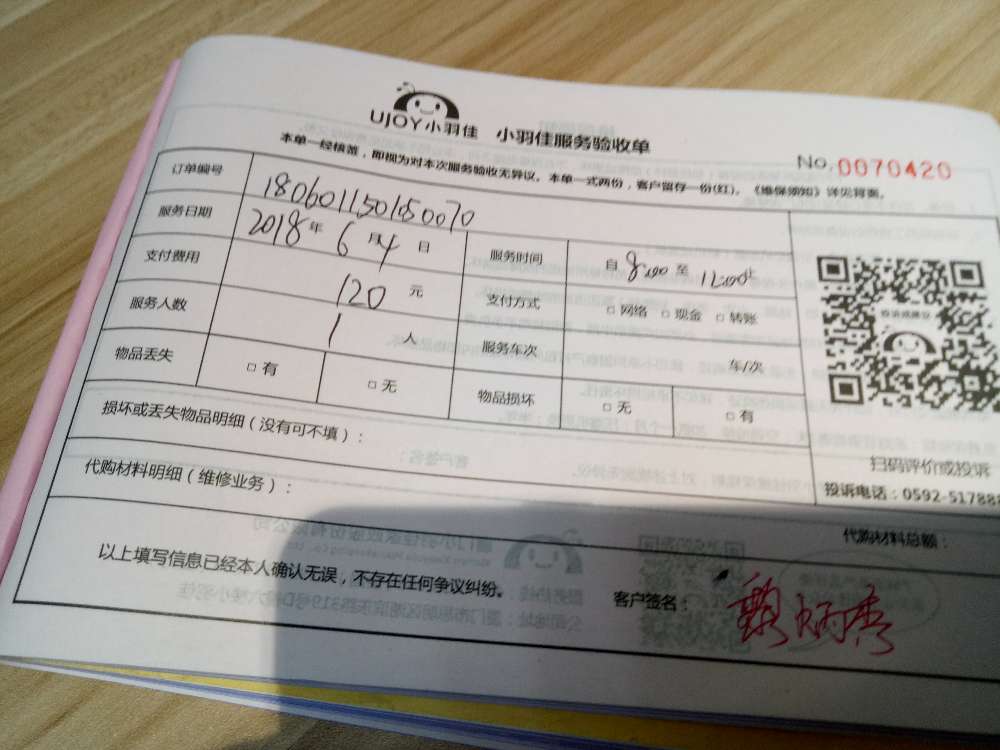 UJOY小羽佳 小羽佳服务验收单
No.0070420
本单一经核签，即视为对本次服务验收无异议。本单一式两份，客户留存一份(红)。《维保须知》详见背面。
订单编号 1806011501050070
服务日期 2018年6月4日 服务时间 自8:00至12:00止
支付费用 120元 支付方式 □网络 □现金 □转账
服务人数 1人 服务车次 车/次
物品丢失 □有 □无 物品损坏 □无 □有
损坏或丢失物品明细（没有可不填）：
扫码评价或投诉
代购材料明细（维修业务）：
投诉电话：0592-517888
代购材料总额：
以上填写信息已经本人确认无误，不存在任何争议纠纷。
客户签名：